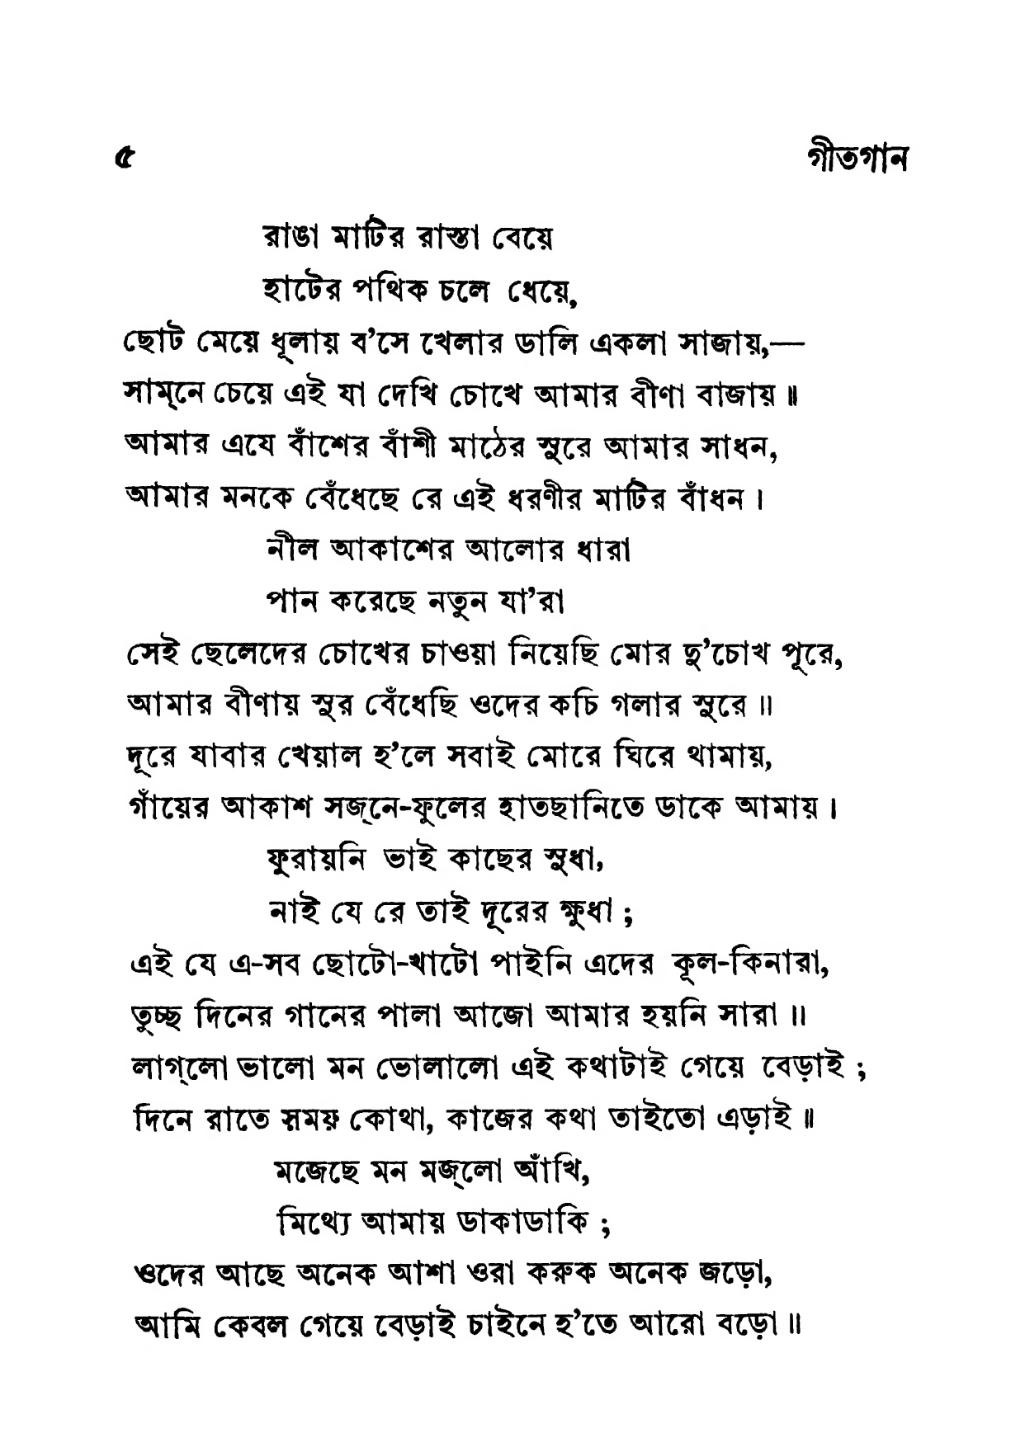 ৫ গীতগান
রাঙা মাটির রাস্তা বেয়ে
হাটের পথিক চলে ধেয়ে,
ছোট মেয়ে ধূলায় ব’সে খেলার ডালি একলা সাজায়,—
সাম্‌নে চেয়ে এই যা দেখি চোখে আমার বীণা বাজায়॥
আমার এযে বাঁশের বাঁশী মাঠের সুরে আমার সাধন,
আমার মনকে বেঁধেছে রে এই ধরণীর মাটির বাঁধন।
নীল আকাশের আলোর ধারা
পান করেছে নতুন যা’রা
সেই ছেলেদের চোখের চাওয়া নিয়েছি মোর দু’চোখ পূরে,
আমার বীণায় সুর বেঁধেছি ওদের কচি গলার সুরে॥
দূরে যাবার খেয়াল হ’লে সবাই মোরে ঘিরে থামায়,
গাঁয়ের আকাশ সজ্‌নে-ফুলের হাতছানিতে ডাকে আমায়।
ফুরায়নি ভাই কাছের সুধা,
নাই যে রে তাই দূরের ক্ষুধা;
এই যে এ-সব ছোটো-খাটো পাইনি এদের কূল-কিনারা,
তুচ্ছ দিনের গানের পালা আজো আমার হয়নি সারা॥
লাগ্‌লো ভালো মন ভোলালো এই কথাটাই গেয়ে বেড়াই;
দিনে রাতে সময় কোথা, কাজের কথা তাইতো এড়াই॥
মজেছে মন মজ্‌লো আঁখি,
মিথ্যে আমায় ডাকাডাকি;
ওদের আছে অনেক আশা ওরা করুক অনেক জড়ো,
আমি কেবল গেয়ে বেড়াই চাইনে হ’তে আরো বড়ো॥